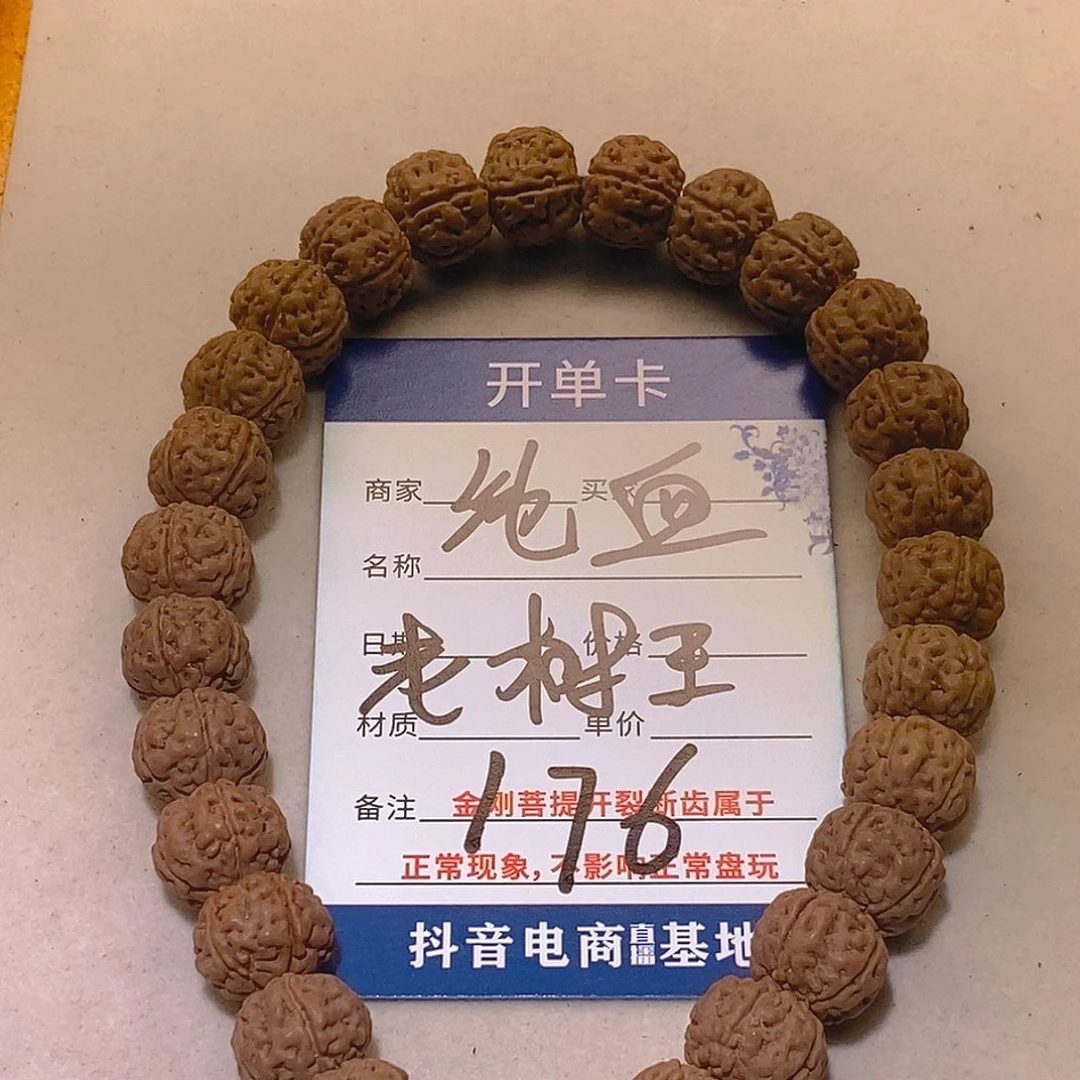 开单卡
商家 买
纯血
名称
日期 价格
老树王
材质 单价
176
备注 金刚菩提开裂断齿属于
正常现象,不影响正常盘玩
抖音电商直播基地